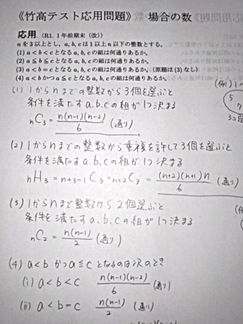 《竹高テスト応用問題》 場合の数
応用. (R1. 1年前期末(改))
nを3以上とし、a, b, cは1以上n以下の整数とする。
(1) a<b<cとなるa, b, cの組は何通りあるか。
(2) a≦b≦cとなるa, b, cの組は何通りあるか。
(3) a<b=cとなるa, b, cの組は何通りあるか。(原題は(3)なし)
(4) a<bかつa≦cとなるa, b, cの組は何通りあるか。
(1) 1からnまでの整数から3個を選ぶと
条件を満たすa.b.cの組が1つ決まる
nC3 = n(n-1)(n-2)/6 (通り)
(2) 1からnまでの整数から重複を許して3個を選ぶと
条件を満たすa.b.cの組が1つ決まる
nH3 = n+3-1C3 = n+2C3 = (n+2)(n+1)n/6 (通り)
(3) 1からnまで整数から2個選ぶと
条件を満たすa.b.cの組が1つ決まる
nC2 = n(n-1)/2 (通り)
(4) a<b かつ a≦c となるのは次のとき
(i) a<b<c n(n-1)(n-2)/6 (通り)
(ii) a<b=c n(n-1)/2 (通り)